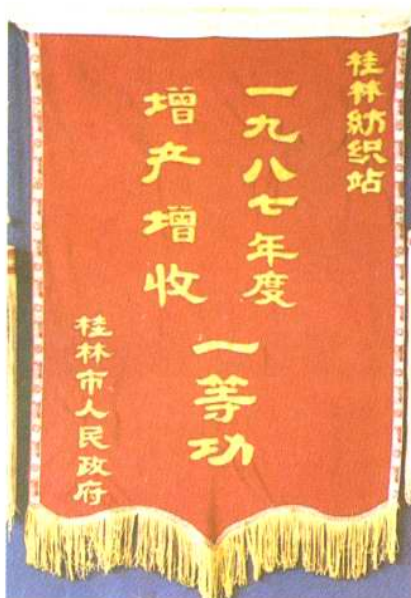 桂林纺织站
一九八七年度
增产增收
一等功
桂林市人民政府